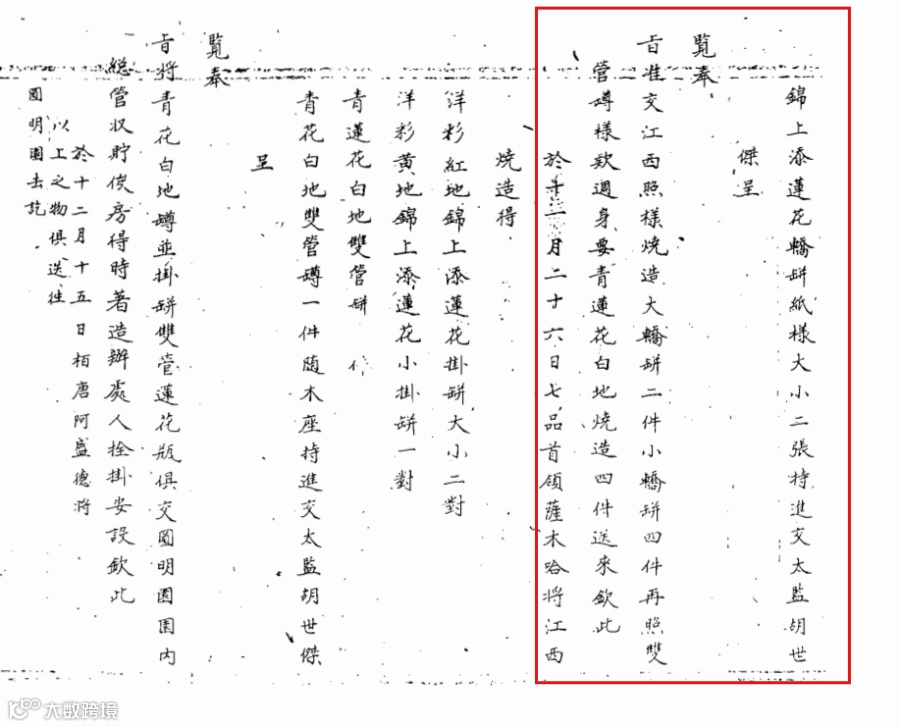 錦上添蓮花轎缾紙樣大小二張持進交太監胡世
傑呈
覧奉
㫖准交江西照樣燒造大轎缾二件小轎缾四件再照雙
管罇樣欵週身要青蓮花白地燒造四件送來欽此
於十二月二十六日七品首領薩木哈將江西
燒造得
洋彩紅地錦上添蓮花掛缾大小二對
洋彩黃地錦上添蓮花小掛缾一對
青蓮花白地雙管缾 件
青花白地雙管罇一件随木座持進交太監胡世傑
呈
覧奉
㫖將青花白地罇並掛缾雙管蓮花瓶俱交圎明園園内
総管収貯俟房得時著造辦處人拴掛安設欽此
於十二月十五日栢唐阿盛德將
以上之物俱送徃
圎明園去訖
大数跨境